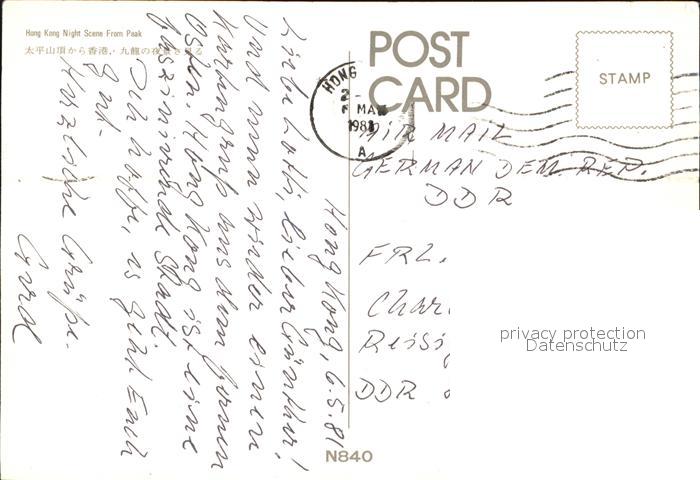 Hong Kong Night Scene From Peak
太平山頂から香港、九龍の夜景を見る
POST
CARD
STAMP
HONG
MA
1981
A
AIR MAIL
GERMAN DEM. REP.
DDR
FRL.
Char.
DDR
privacy protection
Datenschutz
N840
Hong Kong, 6.5.81
Liebe Lotti, lieber Günther!
Und man wieder einen
Kartengruß aus dem fernen
Osten. Hong Kong ist eine
faszinierende Stadt.
Ich hoffe, es geht Euch
gut.
Herzliche Grüße.
Gerd